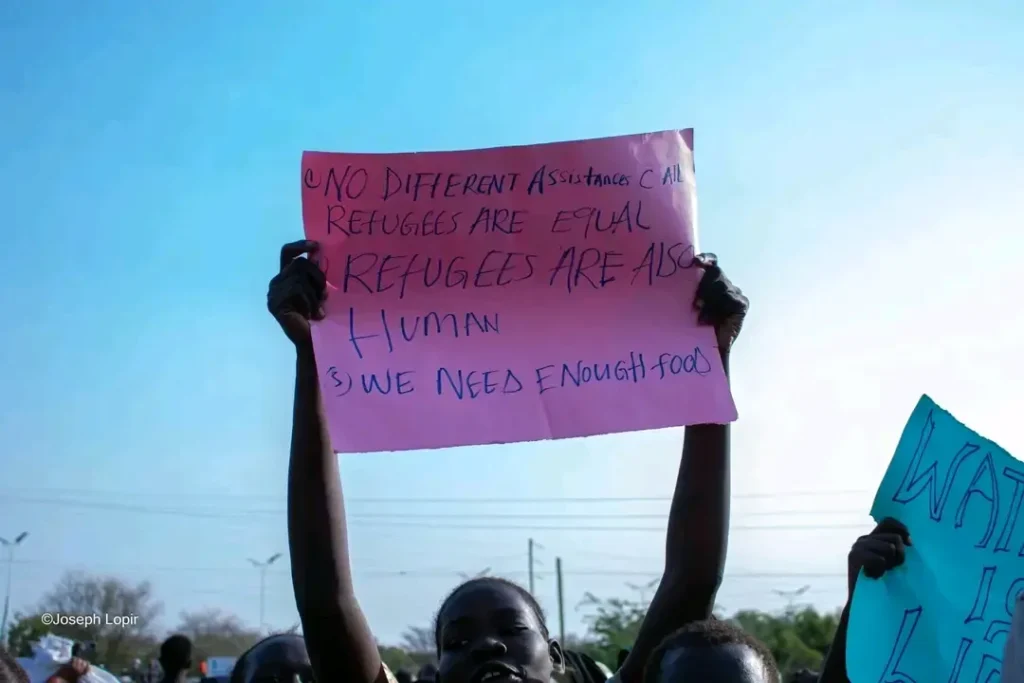 1) NO DIFFERENT ASSISTANCES CALL
REFUGEES ARE EQUAL
REFUGEES ARE ALSO
HUMAN
3) WE NEED ENOUGH FOOD
WAT
IS
LI
©Joseph Lopir